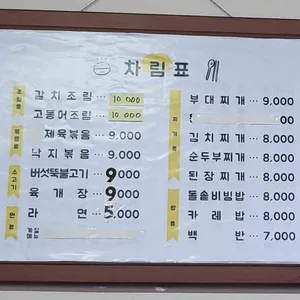 차림표
조림류
갈치조림 ··· 10,000
고등어조림 ··· 10,000
볶음류
제육볶음 ··· 9,000
낙지볶음 ··· 9,000
소고기
버섯뚝불고기 ··· 9,000
육개장 ··· 9,000
면류
라면 ··· 5,000
찌개류
부대찌개 ··· 9,000
00
김치찌개 ··· 8,000
순두부찌개 ··· 8,000
된장찌개 ··· 8,000
밥류
돌솥비빔밥 ··· 8,000
카레밥 ··· 8,000
백반 ··· 7,000